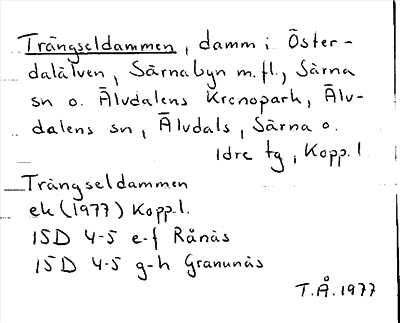 Trängseldammen, damm i Öster-
dalälven, Särnabyn m.fl., Särna
sn o. Älvdalens Kronopark, Älv-
dalens sn, Älvdals, Särna o.
Idre tg, Kopp. l
Trängseldammen
ek (1977) Kopp. l.
15D 4-5 e-f Rånäs
15D 4-5 g-h Granunäs
T.Å. 1977